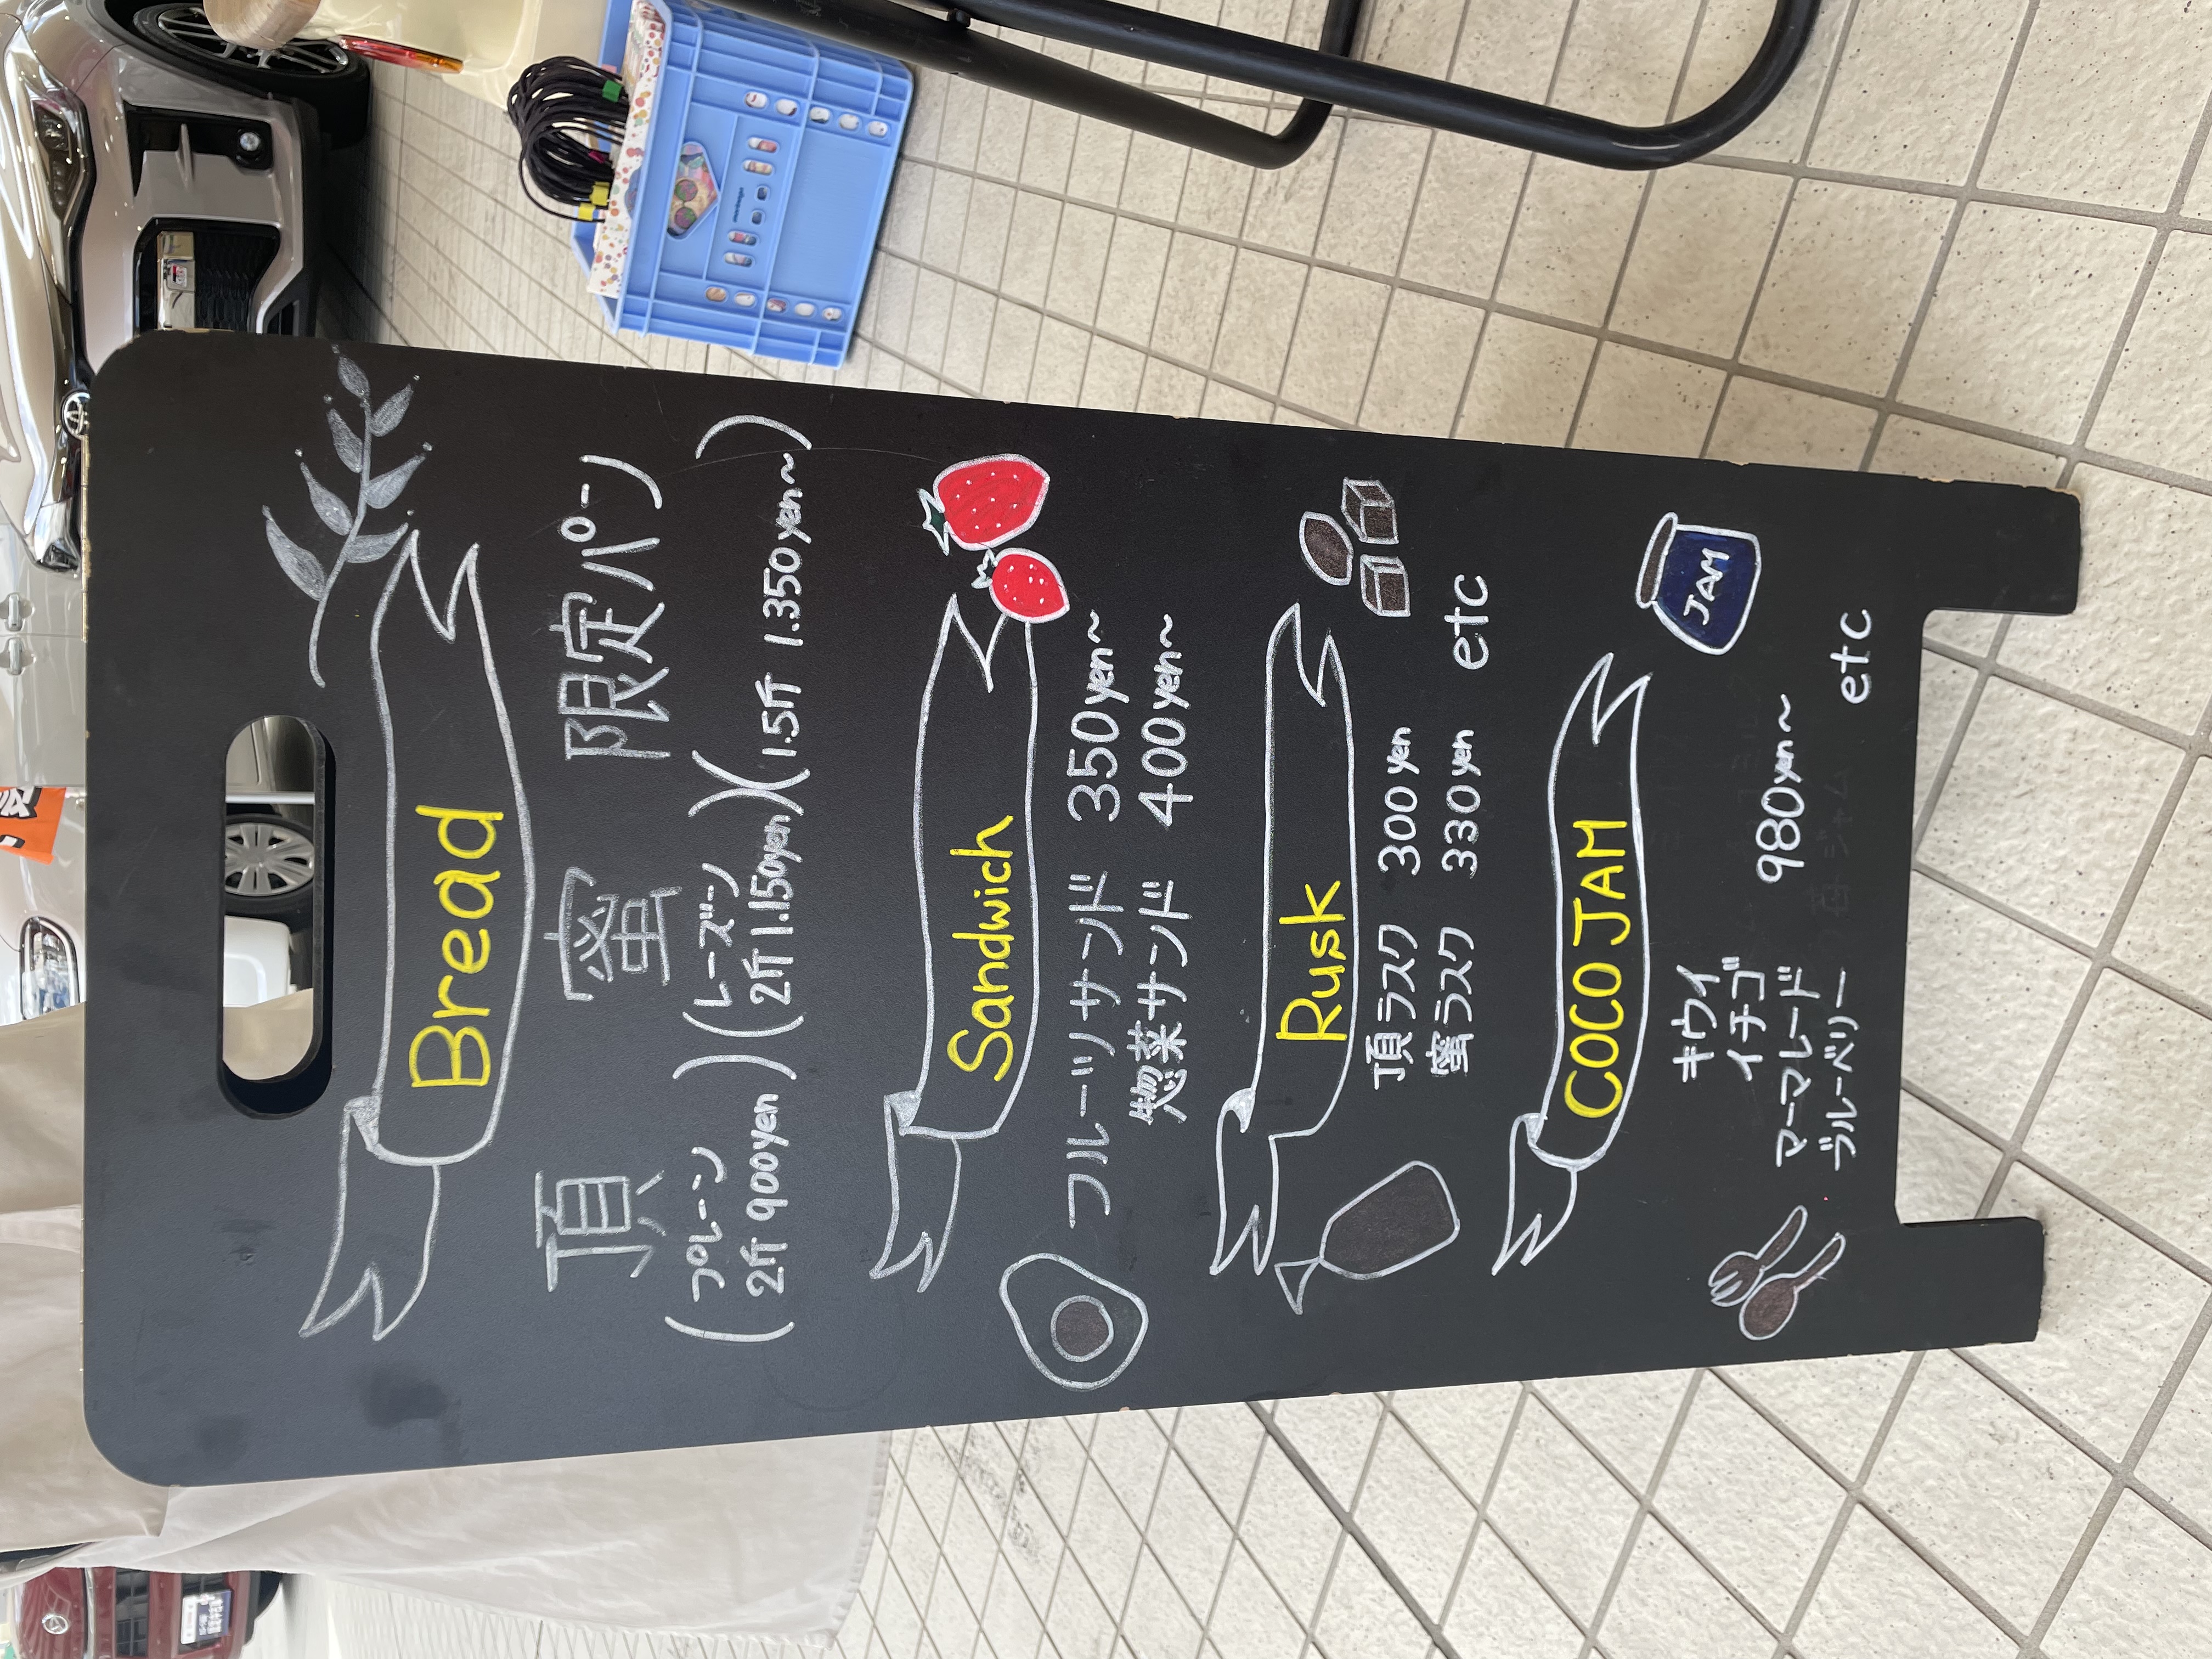 Bread
頂 蜜 限定パン
(プレーン) (レーズン)
2斤 900yen 2斤 1.150yen 1.5斤 1.350yen~
Sandwich
フルーツサンド 350yen~
惣菜サンド 400yen~
Rusk
頂ラスク 300yen
蜜ラスク 330yen etc
COCO JAM
JAM
キウイ
イチゴ
マーマレード 980yen~
ブルーベリー etc